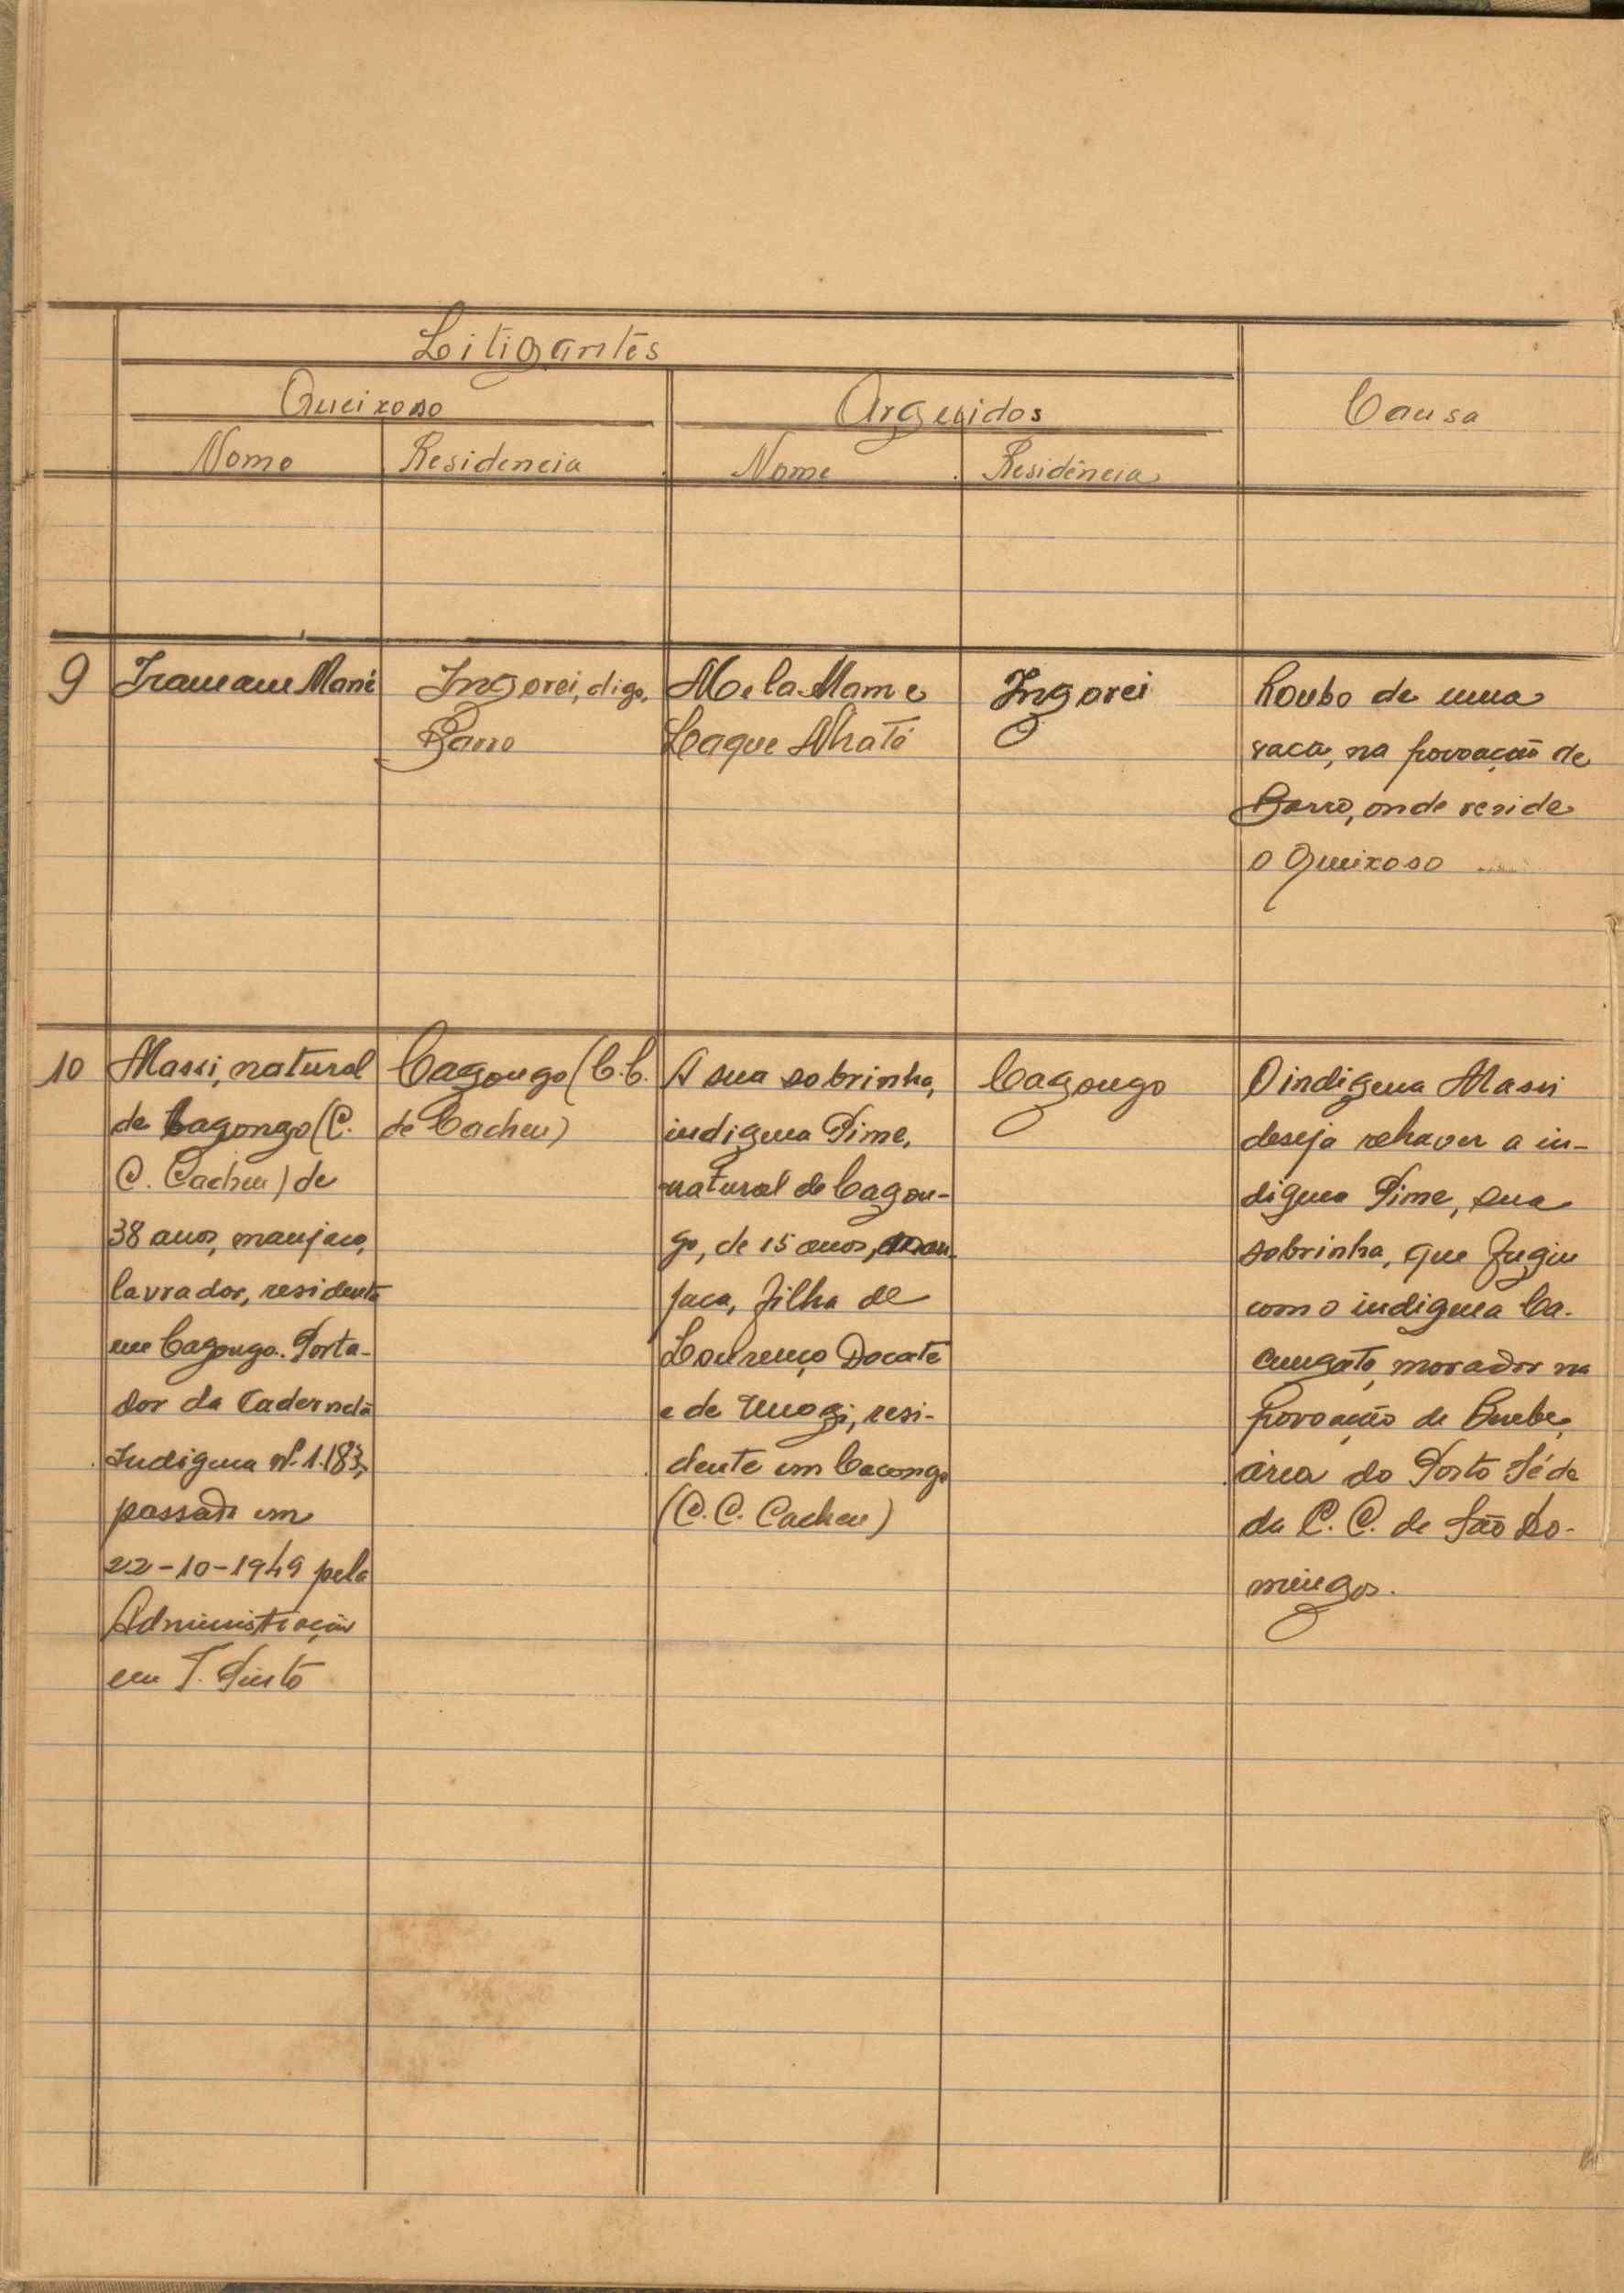 Litigantes
Queixoso
Arguidos
Causa
Nome
Residencia
Nome
Residência
9
Mané
Ingorei, digo,
Barro
Mela Mam e
Laque Nhaté
Ingorei
Roubo de uma
vaca, na povoação de
Barro, onde reside
o Queixoso
10
Massi, natural
de Cagongo (C.
C. Cacheu) de
38 anos, manjaco,
lavrador, residente
em Cagongo. Porta-
dor da Caderneta
Indigena Nº 1.183,
passada em
22-10-1949 pela
Administração
em T. Pinto
Cagongo (C.C.
de Cacheu)
A sua sobrinha,
indigena Pime,
natural de Cagon-
go, de 15 anos, man-
jaca, filha de
Lourenço Docate
e de resi-
dente em Cacongo
(C.C. Cacheu)
Cagongo
O indigena Massi
deseja rehaver a in-
digena Pime, sua
sobrinha, que fugiu
com o indigena Ca-
morador na
povoação de
área do Posto Séde
da C. C. de São Do-
mingos.